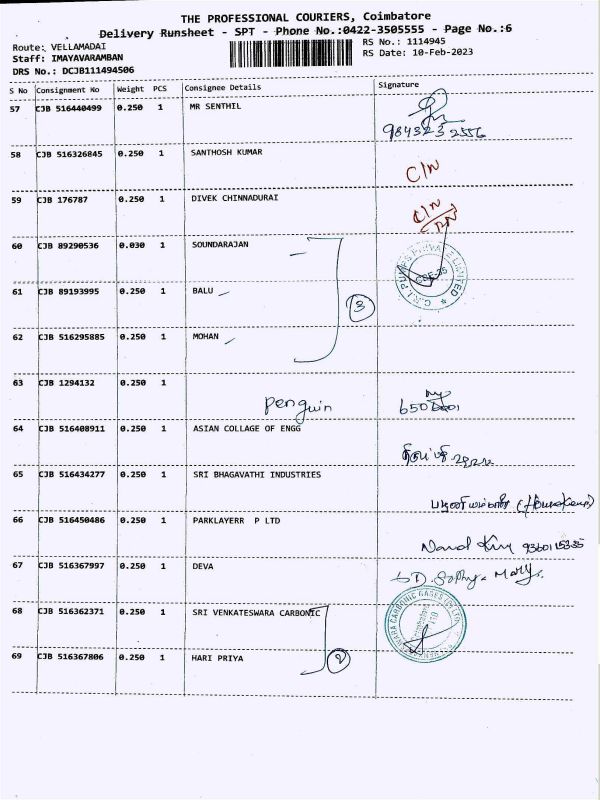 THE PROFESSIONAL COURIERS, Coimbatore
Delivery Runsheet - SPT - Phone No.:0422-3505555 - Page No.:6
Route: VELLAMADAI
RS No.: 1114945
Staff: IMAYAVARAMBAN
RS Date: 10-Feb-2023
DRS No.: DCJB111494506
S No Consignment No Weight PCS Consignee Details Signature
57 CJB 516440499 0.250 1 MR SENTHIL
98432 32556
58 CJB 516326845 0.250 1 SANTHOSH KUMAR
C/N
59 CJB 176787 0.250 1 DIVEK CHINNADURAI
C/N
60 CJB 89290536 0.030 1 SOUNDARAJAN
C.R.I. PUMPS PRIVATE LIMITED
61 CJB 89193995 0.250 1 BALU
3
62 CJB 516295885 0.250 1 MOHAN
63 CJB 1294132 0.250 1
Penguin
64 CJB 516408911 0.250 1 ASIAN COLLAGE OF ENGG
65 CJB 516434277 0.250 1 SRI BHAGAVATHI INDUSTRIES
66 CJB 516450486 0.250 1 PARKLAYERR P LTD
67 CJB 516367997 0.250 1 DEVA
68 CJB 516362371 0.250 1 SRI VENKATESWARA CARBONIC
69 CJB 516367806 0.250 1 HARI PRIYA
2